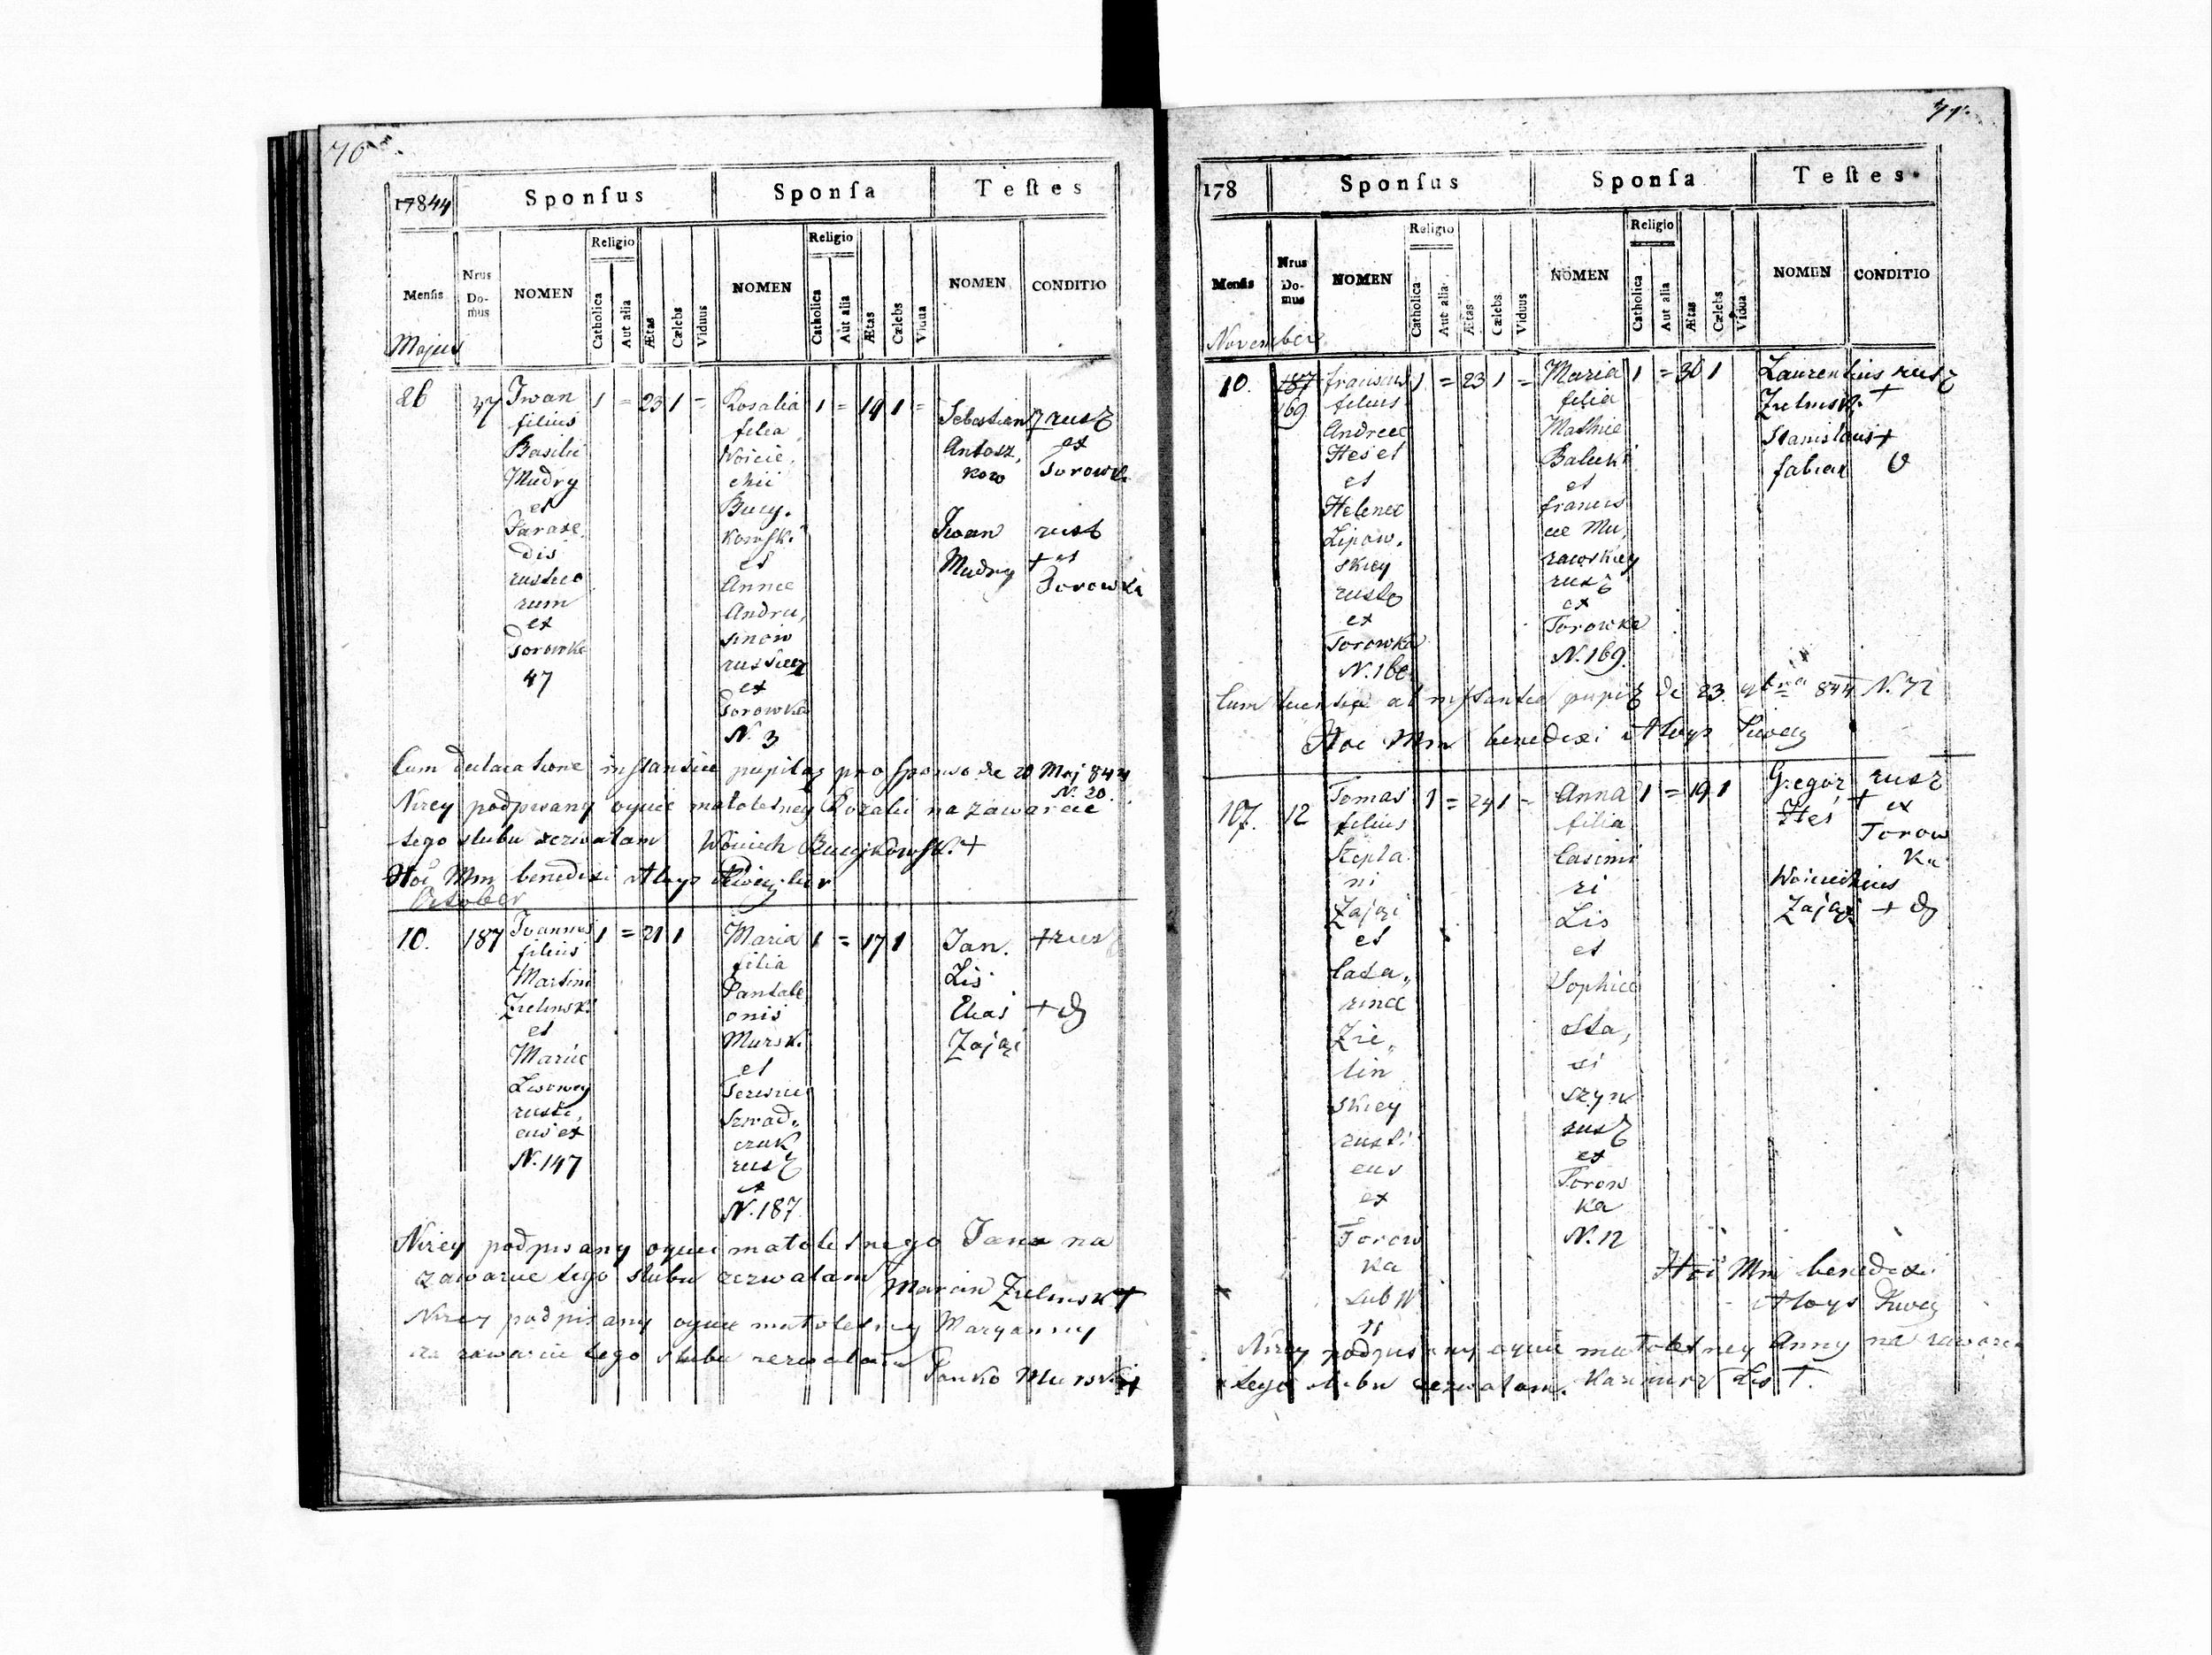 70
17844
Sponſus
Sponſa
Teſtes
Menſis
Nrus
Do-
mus
NOMEN
Religio
Catholica
Aut alia
Ætas
Cælebs
Viduus
NOMEN
Religio
Catholica
Aut alia
Ætas
Cælebs
Vidua
NOMEN
CONDITIO
Majus
26
47
Iwan
filius
Basilii
Mudry
et
Parase,
dis
rustico
rum
ex
Torowka
47
1 = 23 1 =
Rosalia
filia
Woicie,
chii
Bucy.
kowski
et
Annae
Andru,
sinow
ex
Torowka
N. 3
1 = 19 1 =
Sebastian
Antosz,
kow
+ rusz
ex
Torowk.
Iwan
Mudry
rust
+ ex
Torowka
Cum declaratione instantiae pupilaz pro sponso de 20 Maj 844
N. 20.
Nizey podpisany oyciec matoletney Rozalii na zawarcie
tego slubu zezwalam Woiciech Bucykowski +
Hoc Mm benedixi Aloys
October
10.
187
Joannes
filius
Martini
Zielinski
et
Mariae
Lisowey
rusti,
cus ex
N. 147
1 = 21 1
Maria
filia
Pantale
onis
Murski
et
czuk
rusz
ex
N. 187
1 = 17 1
Jan.
Lis
+ rusz
Elias
Zając
+
Nizey podpisany oyciec matoletnego Jana na
zawarcie tego slubu zezwalam
Marcin Zielinski +
Nizey podpisany oyciec matoletney Maryanny
na zawarcie tego slubu zezwalam
Panko Murski +
71.
178
Sponſus
Sponſa
Teſtes.
Menſis
Nrus
Do-
mus
NOMEN
Religio
Catholica
Aut alia
Ætas
Cælebs
Viduus
NOMEN
Religio
Catholica
Aut alia
Ætas
Cælebs
Vidua
NOMEN
CONDITIO
November
10.
187
169
franciscus
filius
Andreae
et
Helenae
Lipow.
skiey
ex
Torowka
1 = 23 1 =
Maria
filia
Mathiae
et
francis
cae Mu,
rawskiey
rusz
ex
Torowka
N. 169.
1 = 30 1
Laurentius rusz
Zielinski +
Stanislaus +
fabian
Hoc Mm benedixi Aloys
107.
12
Tomas
filius
Stepha
ni
Zając
et
Cata,,
rinae
Zie,,
lin
skiey
rusti
cus
ex
Torow
ka
sub N.
1 = 24 1 =
Anna
filia
Casimi
ri
Lis
et
Sophiae
Sta,
si
szyn
rusz
ex
Torow
ka
N. 12
1 = 19 1
Gregor
Heś
rusz
+ ex
Torow
ka
Woiciechius
Zając +
Hoc Mm benedixi
Aloys
Nizey podpisany oyciec matoletney Anny na zawarcie
tego slubu zezwalam. Kazimirz Lis +.